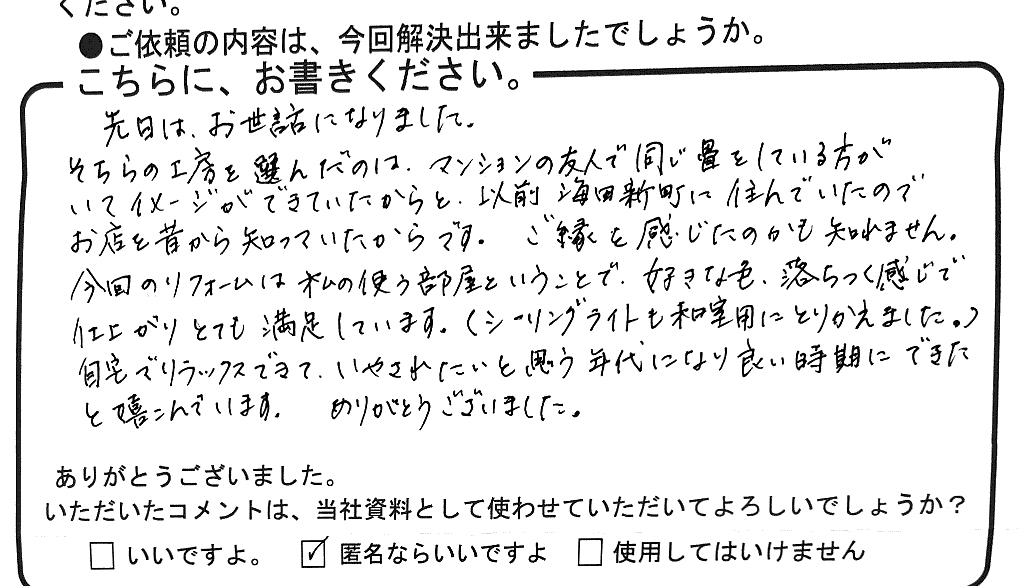 ください。
●ご依頼の内容は、今回解決出来ましたでしょうか。
こちらに、お書きください。
先日は、お世話になりました。
そちらの工房を選んだのは、マンションの友人で同じ畳をしている方が
いてイメージができていたからと、以前海田新町に住んでいたので
お店を昔から知っていたからです。 ご縁を感じたのかも知れません。
今回のリフォームは私の使う部屋ということで、好きな色、落ちつく感じで
仕上がりとても満足しています。(シーリングライトも和室用にとりかえました。)
自宅でリラックスできて、いやされたいと思う年代になり良い時期にできた
と嬉こんでいます。 ありがとうございました。
ありがとうございました。
いただいたコメントは、当社資料として使わせていただいてよろしいでしょうか？
□ いいですよ。 ☑ 匿名ならいいですよ □ 使用してはいけません